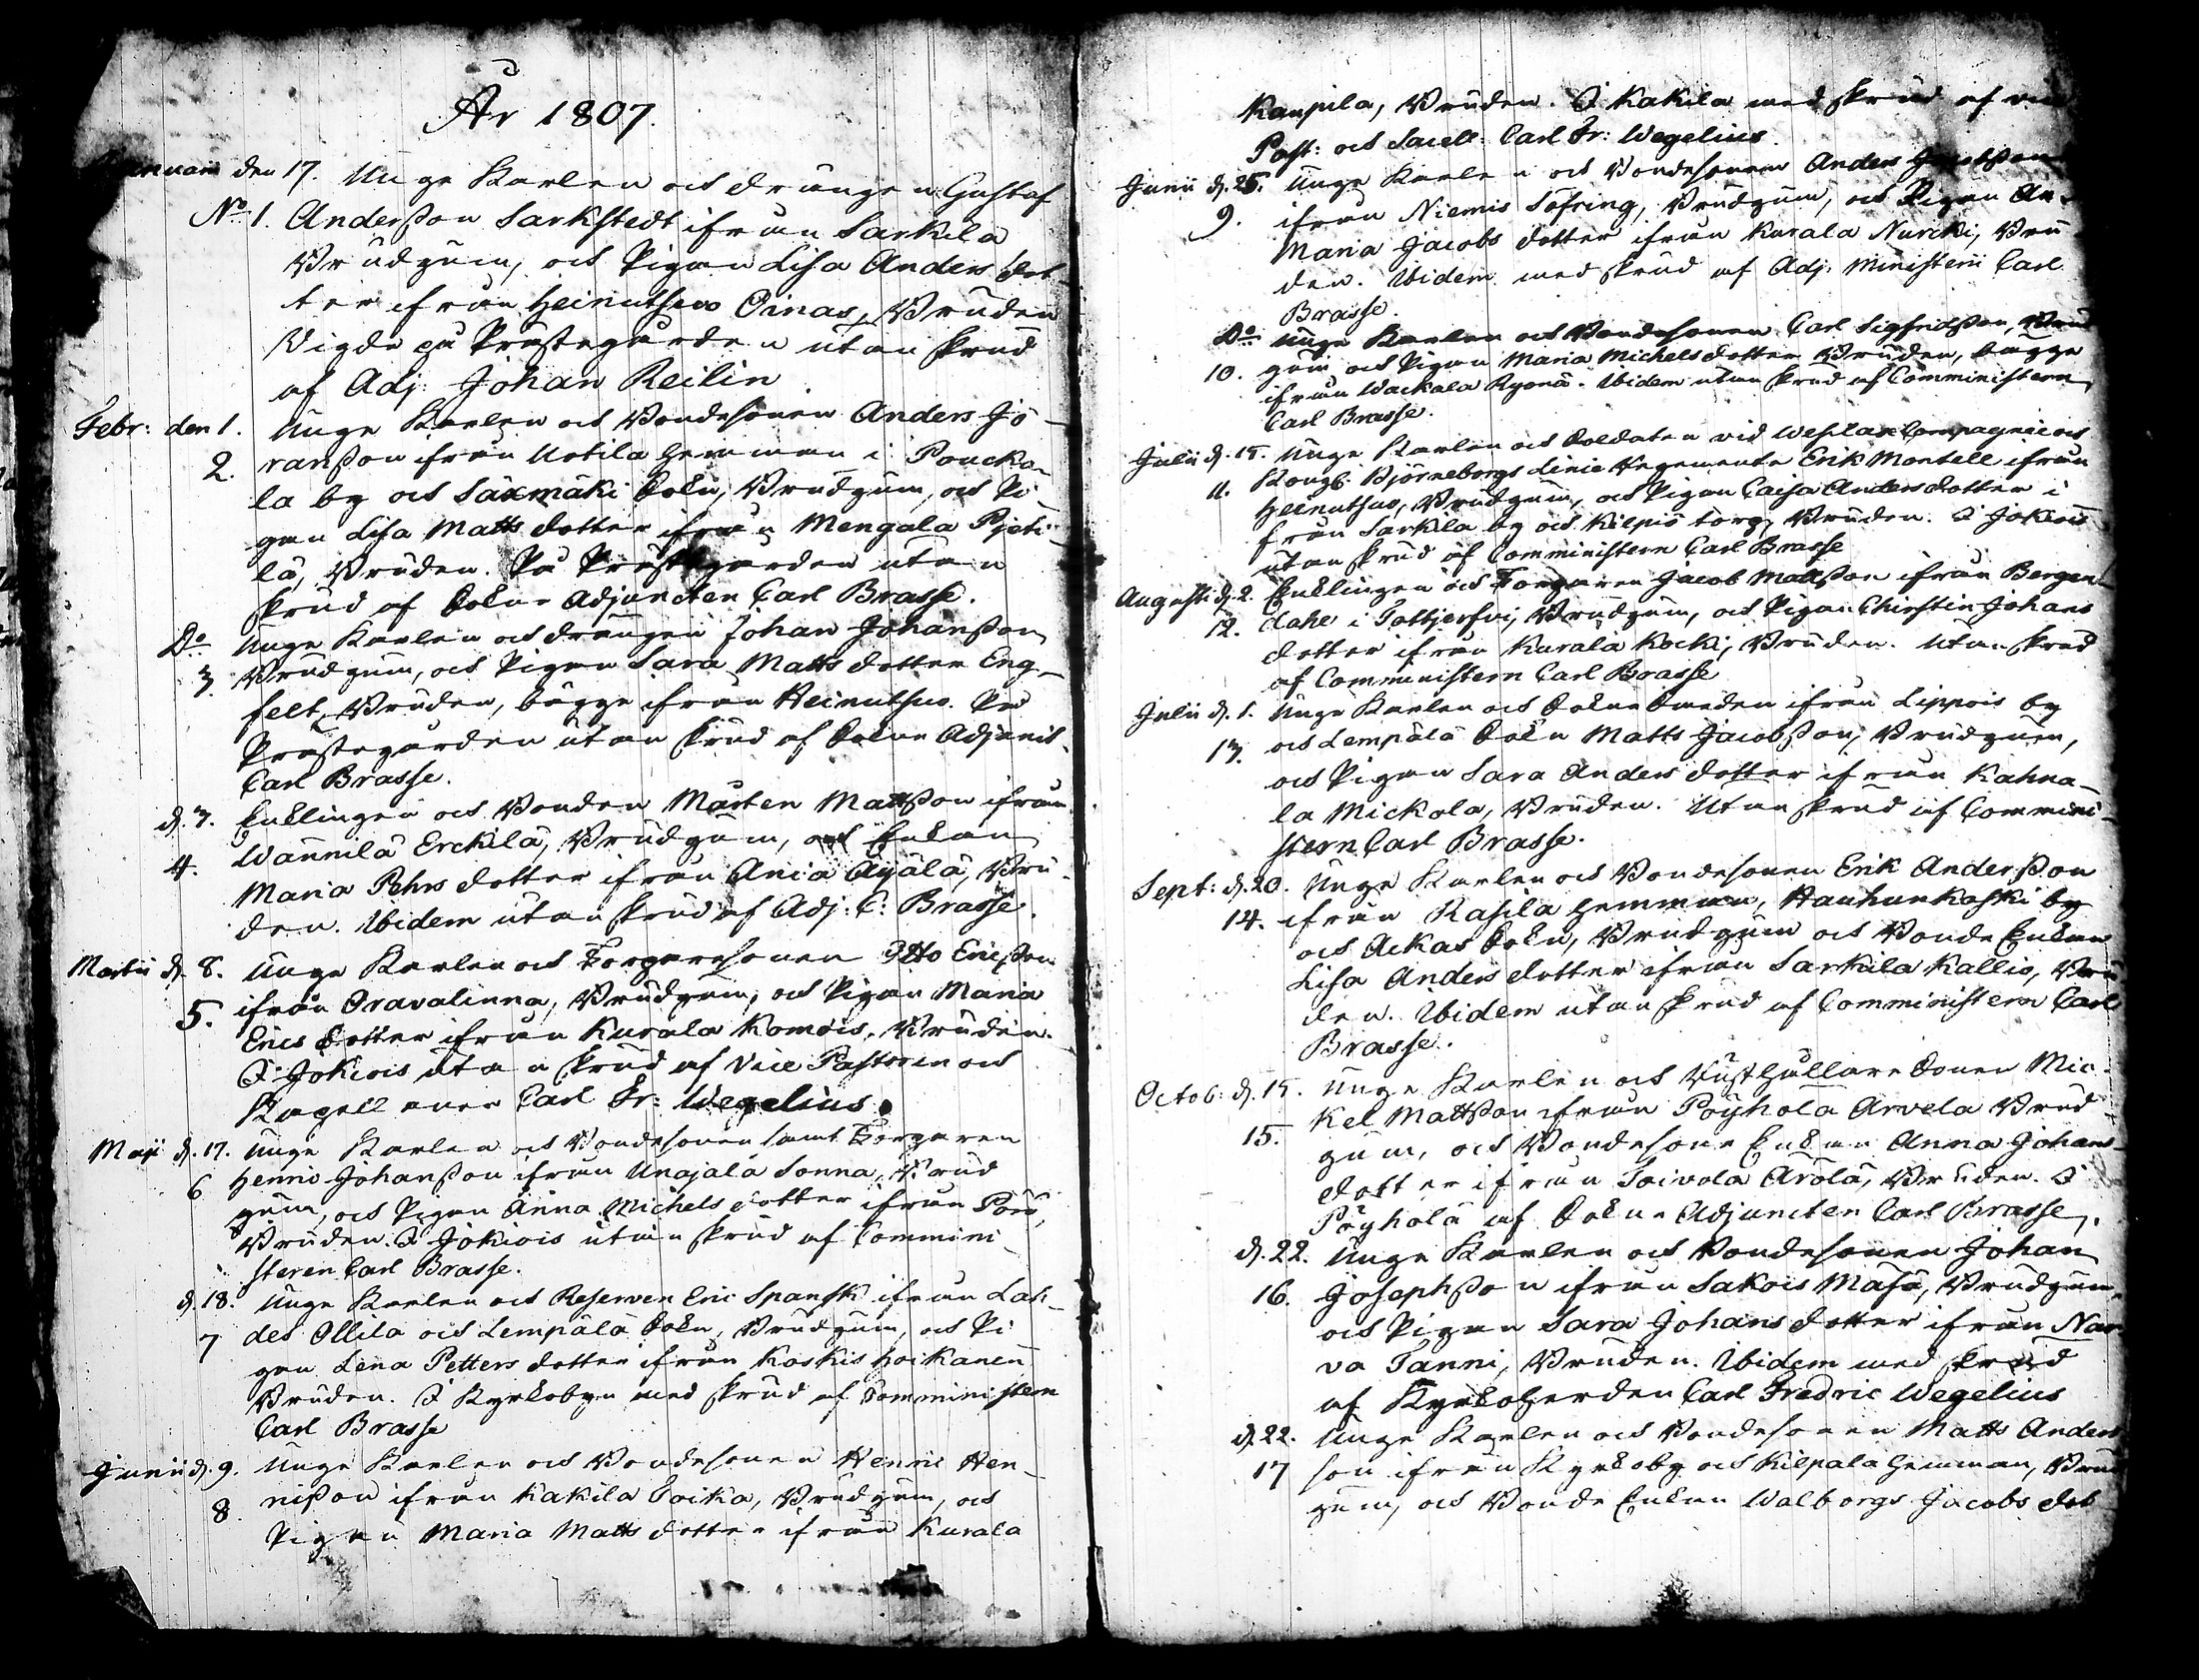 År 1807.
Januarii den 17. Unge Karlen och drängen Gustaf
No 1. Andersson Sarkstedt ifrån Sarkila
Brudgum, och Pigan Lisa Anders dot-
ter ifrån Heinuthuo Oinas, Bruden
Vigde på Prästegården utan skrud
af Adj: Johan Reilin
Febr: den 1. Unge Karlen och Bondesonen Anders Jö-
2. ransson ifrån Uotila Hemman i Poucka-
la by och Säxmäki Sokn, Brudgum, och Pi-
gan Lisa Matts dotter ifrån Mengala Pjeti-
lä, Bruden. På Prästgården utan
skrud af Sokne Adjuncten Carl Brasse.
Do Unge Karlen och drängen Johan Johansson
3. Brudgum, och Pigan Sara Matts dotter Eng-
felt, Bruden, bägge ifrån Heinuthuo. På
Prästegården utan skrud af Sokne Adjunct.
Carl Brasse.
d. 3. Enklingen och Bonden Mårten Mattsson ifrån
4. Wannilä Erckilä, Brudgum, och Enkan
Maria Pehrs dotter ifrån Aniä Äyälä, Bru-
den. Ibidem utan skrud af Adj: C: Brasse.
Martii d. 8. Unge Karlen och Torparesonen Otto Ericsson
5. ifrån Oravalinna, Brudgum, och Pigan Maria
Erics dotter ifrån Kurala Komois, Bruden.
I Jokiois utan skrud af Vice Pastoren och
Kapellanen Carl Fr: Wegelius.
Maji d. 17. Unge Karlen och Bondesonen samt Torparen
6 Henric Johansson ifrån Unajala Sonna, Brud
gum, och Pigan Anna Michels dotter ifrån
Bruden. I Jokiois utan skrud af Commini-
steren Carl Brasse.
d. 18. Unge Karlen och Reserven Eric Spansk ifrån Lah-
7 des Ollila och Lempälä Sokn, Brudgum, och Pi
gan Lena Petters dotter ifrån Koskis Hoikanen
Bruden. I Kyrkobyn med skrud af Comministern
Carl Brasse
Junii d. 9. Unge Karlen och Bondesonen Henric Hen-
8. nisson ifrån Kakila Toika, Brudgum, och
Pigan Maria Matts dotter ifrån Kurala
Kaupila, Bruden. I Kakila med skrud af
Past: och Sacell: Carl Fr: Wegelius.
Junii d. 25. Unge Karlen och Bondesonen Anders Jacobsson
9. ifrån Niemis Söfring, Brudgum, och Pigan
Maria Jacobs dotter ifrån Kurala Nurcki, Bru
den. Ibidem med skrud af Adj: Ministerii Carl
Brasse.
Do Unge Karlen och Bondesonen Carl Sigfridsson, Brud
10. gum och Pigan Maria Michels dotter Bruden, bägge
ifrån Wackala Ryonä. Ibidem utan skrud af Comministern
Carl Brasse.
Julii d. 15. Unge Karlen och Soldaten vid Wesilax Compagnie och
11. Kongl. Björneborgs Linie Regemente Erik Montell ifrån
Heinuthuo, Brudgum, och Pigan Caisa Anders dotter i
från Sarkila by och Kilpiö torp, Bruden. I Jokiois
utan skrud af Comministern Carl Brasse
Augusti d. 2. Enklingen och Torparen Jacob Mattsson ifrån Bergen-
12. dahl i Tottjerfvi, Brudgum, och Pigan Christin Johans
dotter ifrån Kurala Kocki, Bruden. Utan skrud
af Comministern Carl Brasse
Julii d. 1. Unge Karlen och Sokne Smeden ifrån Lippois by
13. och Lempälä Sokn Matts Jacobsson, Brudgum,
och Pigan Sara Anders dotter ifrån Kahna-
la Mickola, Bruden. Utan skrud af Commini-
stern Carl Brasse.
Sept: d. 20. Unge Karlen och Bondesonen Erik Andersson
14. ifrån Rasila Hemman, Hauhunkoski by
och Ackas Sokn, Brudgum och Bonde Enkan
Lisa Anders dotter ifrån Sarkila Kallio, Bru
den. Ibidem utan skrud af Comministern Carl
Brasse.
Octob: d. 15. Unge Karlen och Rusthållare Sonen Mic-
15. kel Mattsson ifrån Pöyhölä Arvela Brud
gum, och Bondesone Enkan Anna Johans-
dotter ifrån Toivola Arola, Bruden. I
Pöyhölä af Sokne Adjuncten Carl Brasse.
d. 22. Unge Karlen och Bondesonen Johan
16. Josephsson ifrån Sakois Masa, Brudgum
och Pigan Sara Johans dotter ifrån Nar
va Tanni, Bruden. Ibidem med skrud
af Kyrkoherden Carl Fredric Wegelius
d. 22. Unge Karlen och Bondesonen Matts Anders
17 son ifrån Kyrkoby och Kilpala Hemman, Brud
gum, och Bonde Enkan Walborgs Jacobs dot